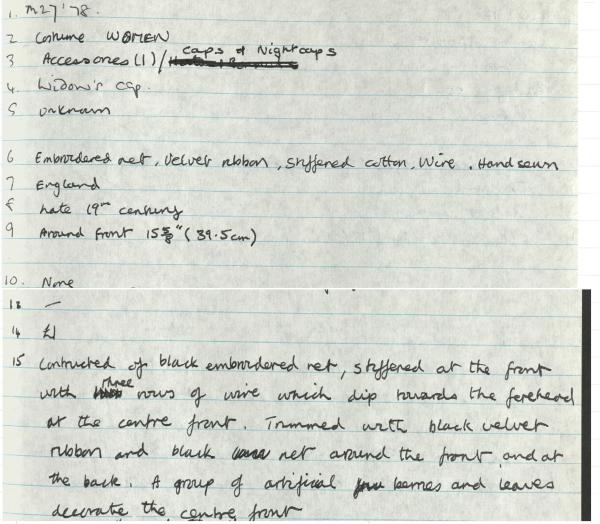 1. M27'78.
2 Costume WOMEN
3 Accessories (1) / Caps & Nightcaps
4. Widow's cap.
5 unknown
6 Embroidered net, Velvet ribbon, stiffened cotton, Wire. Hand sewn
7 England
8 Late 19th century
9 Around front 15 5/8" (39.5cm)
10. None
13 —
14 £1
15 Contructed of black embroidered net, stiffened at the front
with three rows of wire which dip towards the forehead
at the centre front. Trimmed with black velvet
ribbon and black net around the front and at
the back. A group of artificial berries and leaves
decorate the centre front